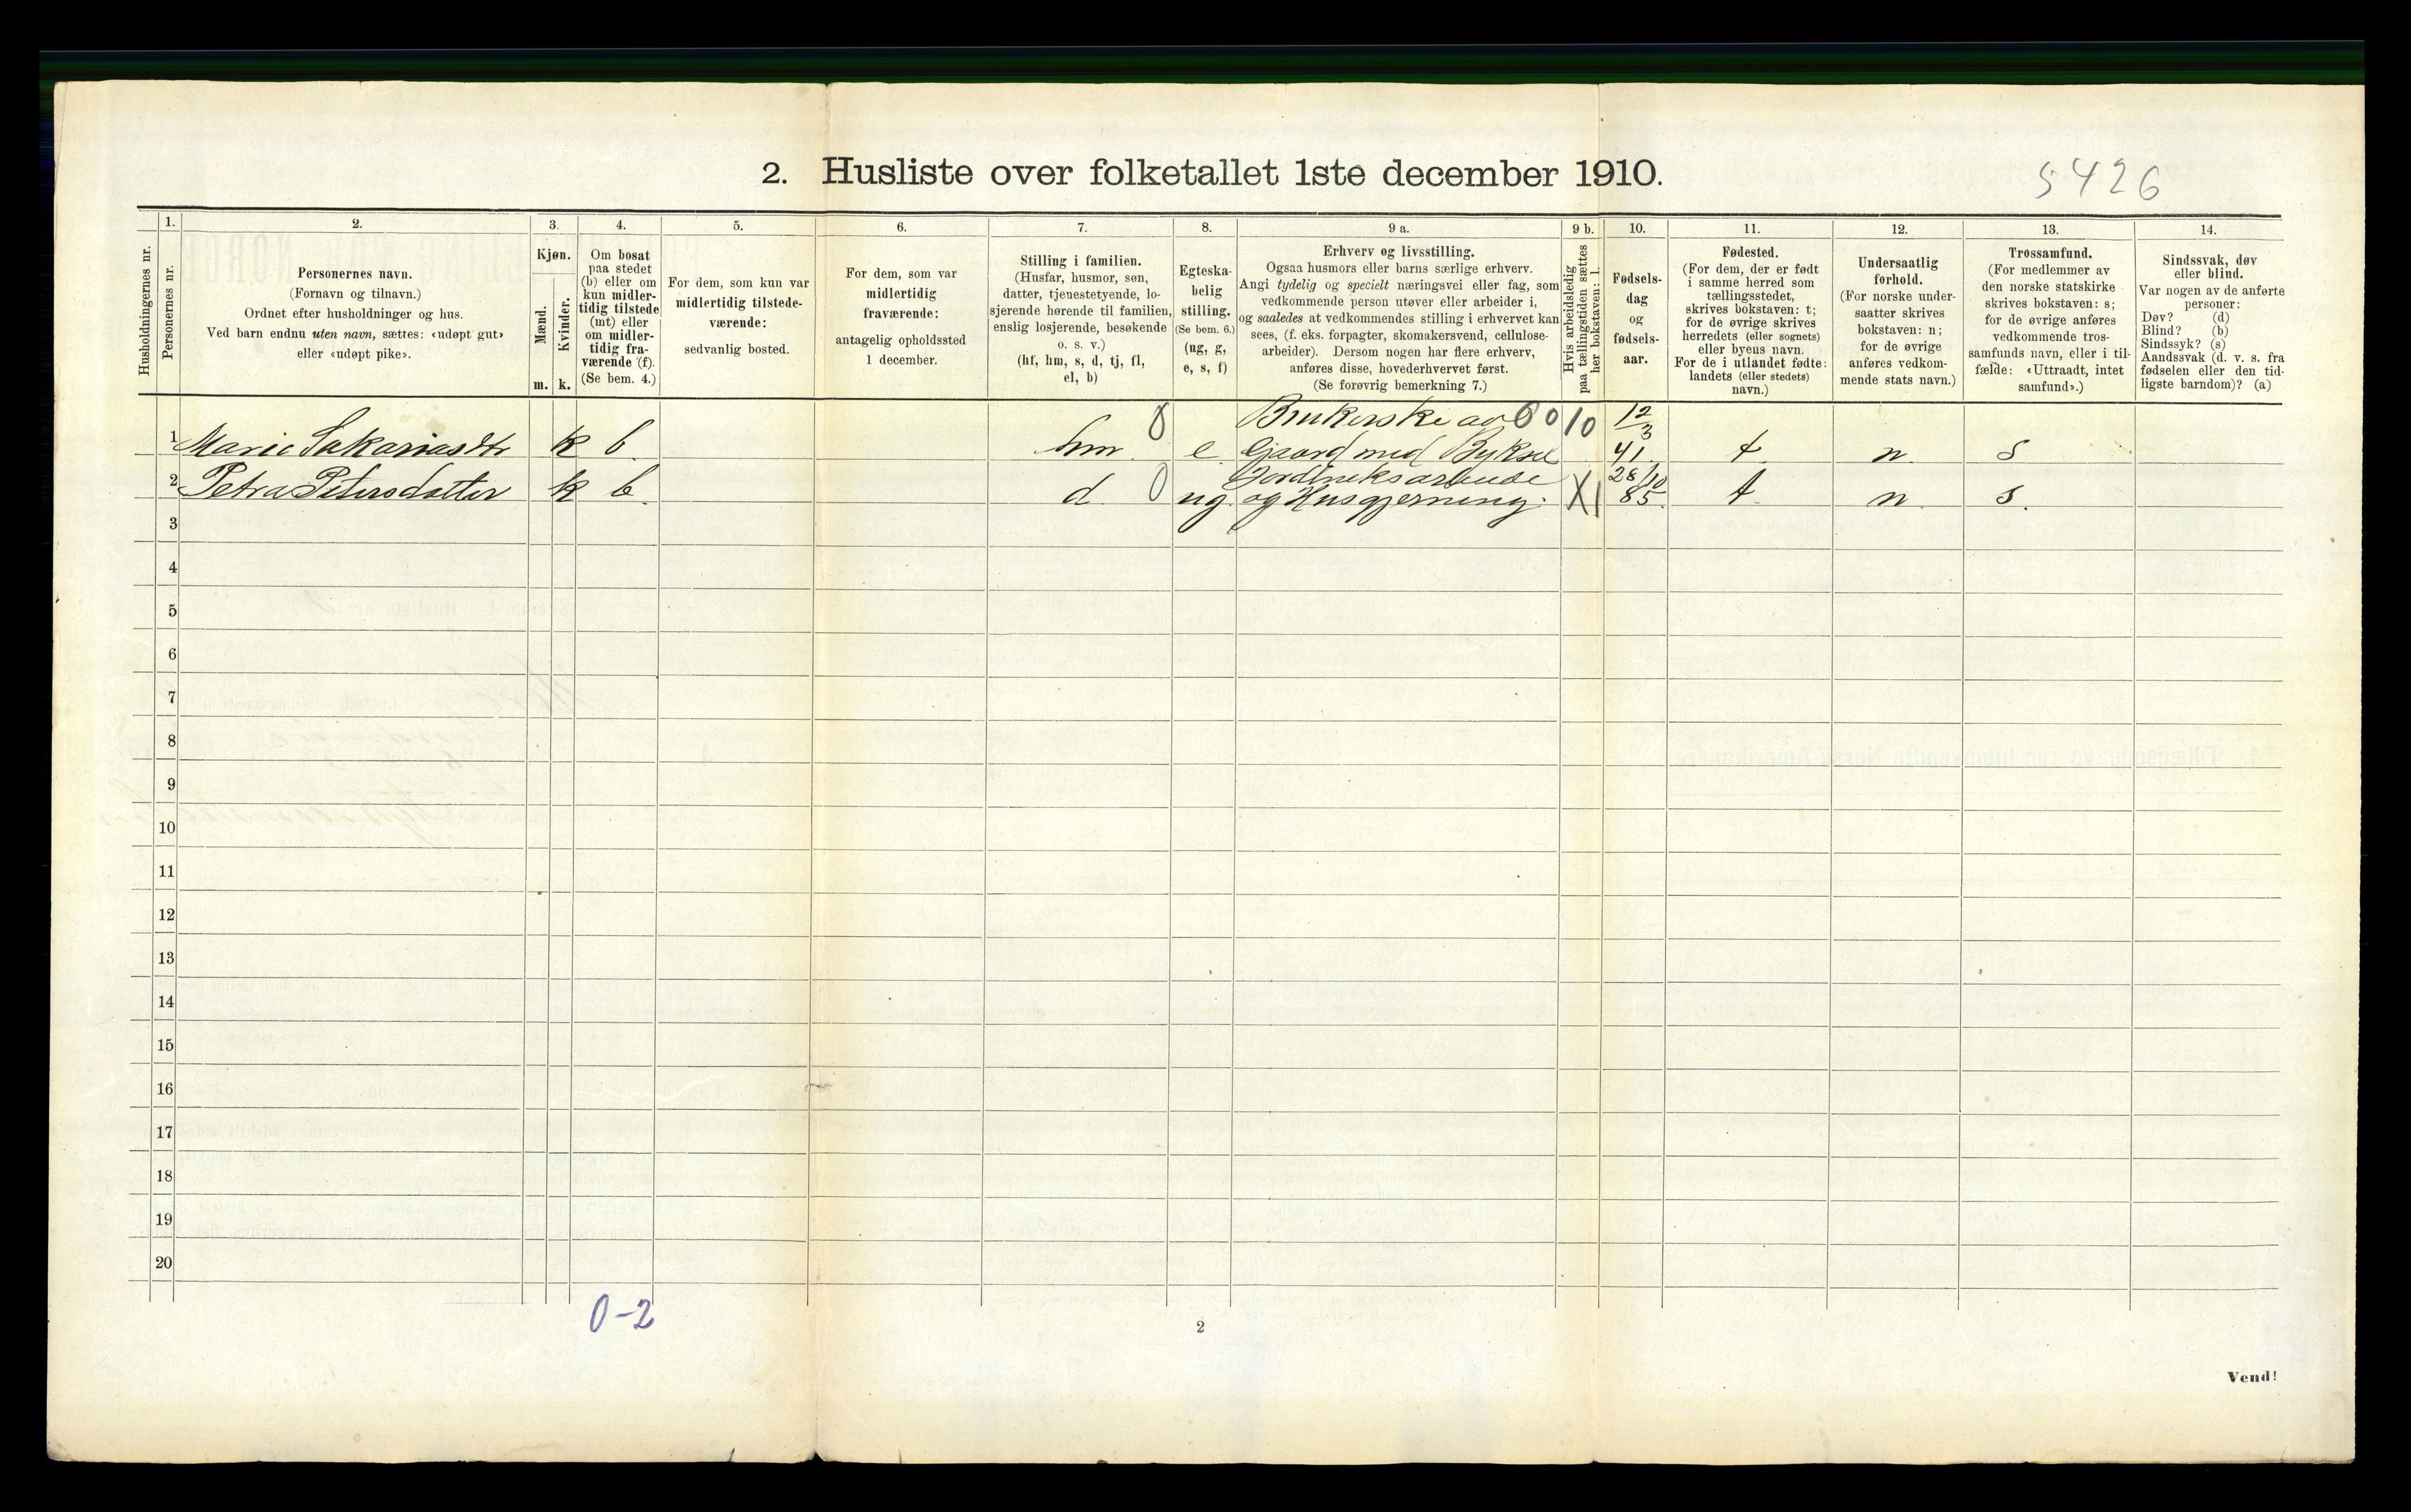 2. Husliste over folketallet 1ste december 1910.
5426
Husholdningernes nr.
1.
Personernes nr.
2.
Personernes navn.
(Fornavn og tilnavn.)
Ordnet efter husholdninger og hus.
Ved barn endnu uten navn, sættes: «udøpt gut»
eller «udøpt pike».
3.
Kjøn.
Mænd.
Kvinder.
m. k.
4.
Om bosat
paa stedet
(b) eller om
kun midler-
tidig tilstede
(mt) eller
om midler-
tidig fra-
værende (f).
(Se bem. 4.)
5.
For dem, som kun var
midlertidig tilstede-
værende:
sedvanlig bosted.
6.
For dem, som var
midlertidig
fraværende:
antagelig opholdssted
1 december.
7.
Stilling i familien.
(Husfar, husmor, søn,
datter, tjenestetyende, lo-
sjerende hørende til familien,
enslig losjerende, besøkende
o. s. v.)
(hf, hm, s, d, tj, fl,
el, b)
8.
Egteska-
belig
stilling.
(Se bem. 6.)
(ug, g,
e, s, f)
9 a.
Erhverv og livsstilling.
Ogsaa husmors eller barns særlige erhverv.
Angi tydelig og specielt næringsvei eller fag, som
vedkommende person utøver eller arbeider i,
og saaledes at vedkommendes stilling i erhvervet kan
sees, (f. eks. forpagter, skomakersvend, cellulose-
arbeider). Dersom nogen har flere erhverv,
anføres disse, hovederhvervet først.
(Se forøvrig bemerkning 7.)
9 b.
Hvis arbeidsledig
paa tællingstiden sættes
her bokstaven: l.
10.
Fødsels-
dag
og
fødsels-
aar.
11.
Fødested.
(For dem, der er født
i samme herred som
tællingsstedet,
skrives bokstaven: t;
for de øvrige skrives
herredets (eller sognets)
eller byens navn.
For de i utlandet fødte:
landets (eller stedets)
navn.)
12.
Undersaatlig
forhold.
(For norske under-
saatter skrives
bokstaven: n;
for de øvrige
anføres vedkom-
mende stats navn.)
13.
Trossamfund.
(For medlemmer av
den norske statskirke
skrives bokstaven: s;
for de øvrige anføres
vedkommende tros-
samfunds navn, eller i til-
fælde: «Uttraadt, intet
samfund».)
14.
Sindssvak, døv
eller blind.
Var nogen av de anførte
personer:
Døv? (d)
Blind? (b)
Sindssyk? (s)
Aandssvak (d. v. s. fra
fødselen eller den tid-
ligste barndom)? (a)
Brukerske av 12/3
1 Marie Sakariasdtr k b hm e Gjaard med Byksel 41 t n s
Jordbruksarbeide 28/10
2 Petra Petersdatter k b d ug og Husgjerning. X1 85 t n s.
3
4
5
6
7
8
9
10
11
12
13
14
15
16
17
18
19
20
0-2
2
Vend!